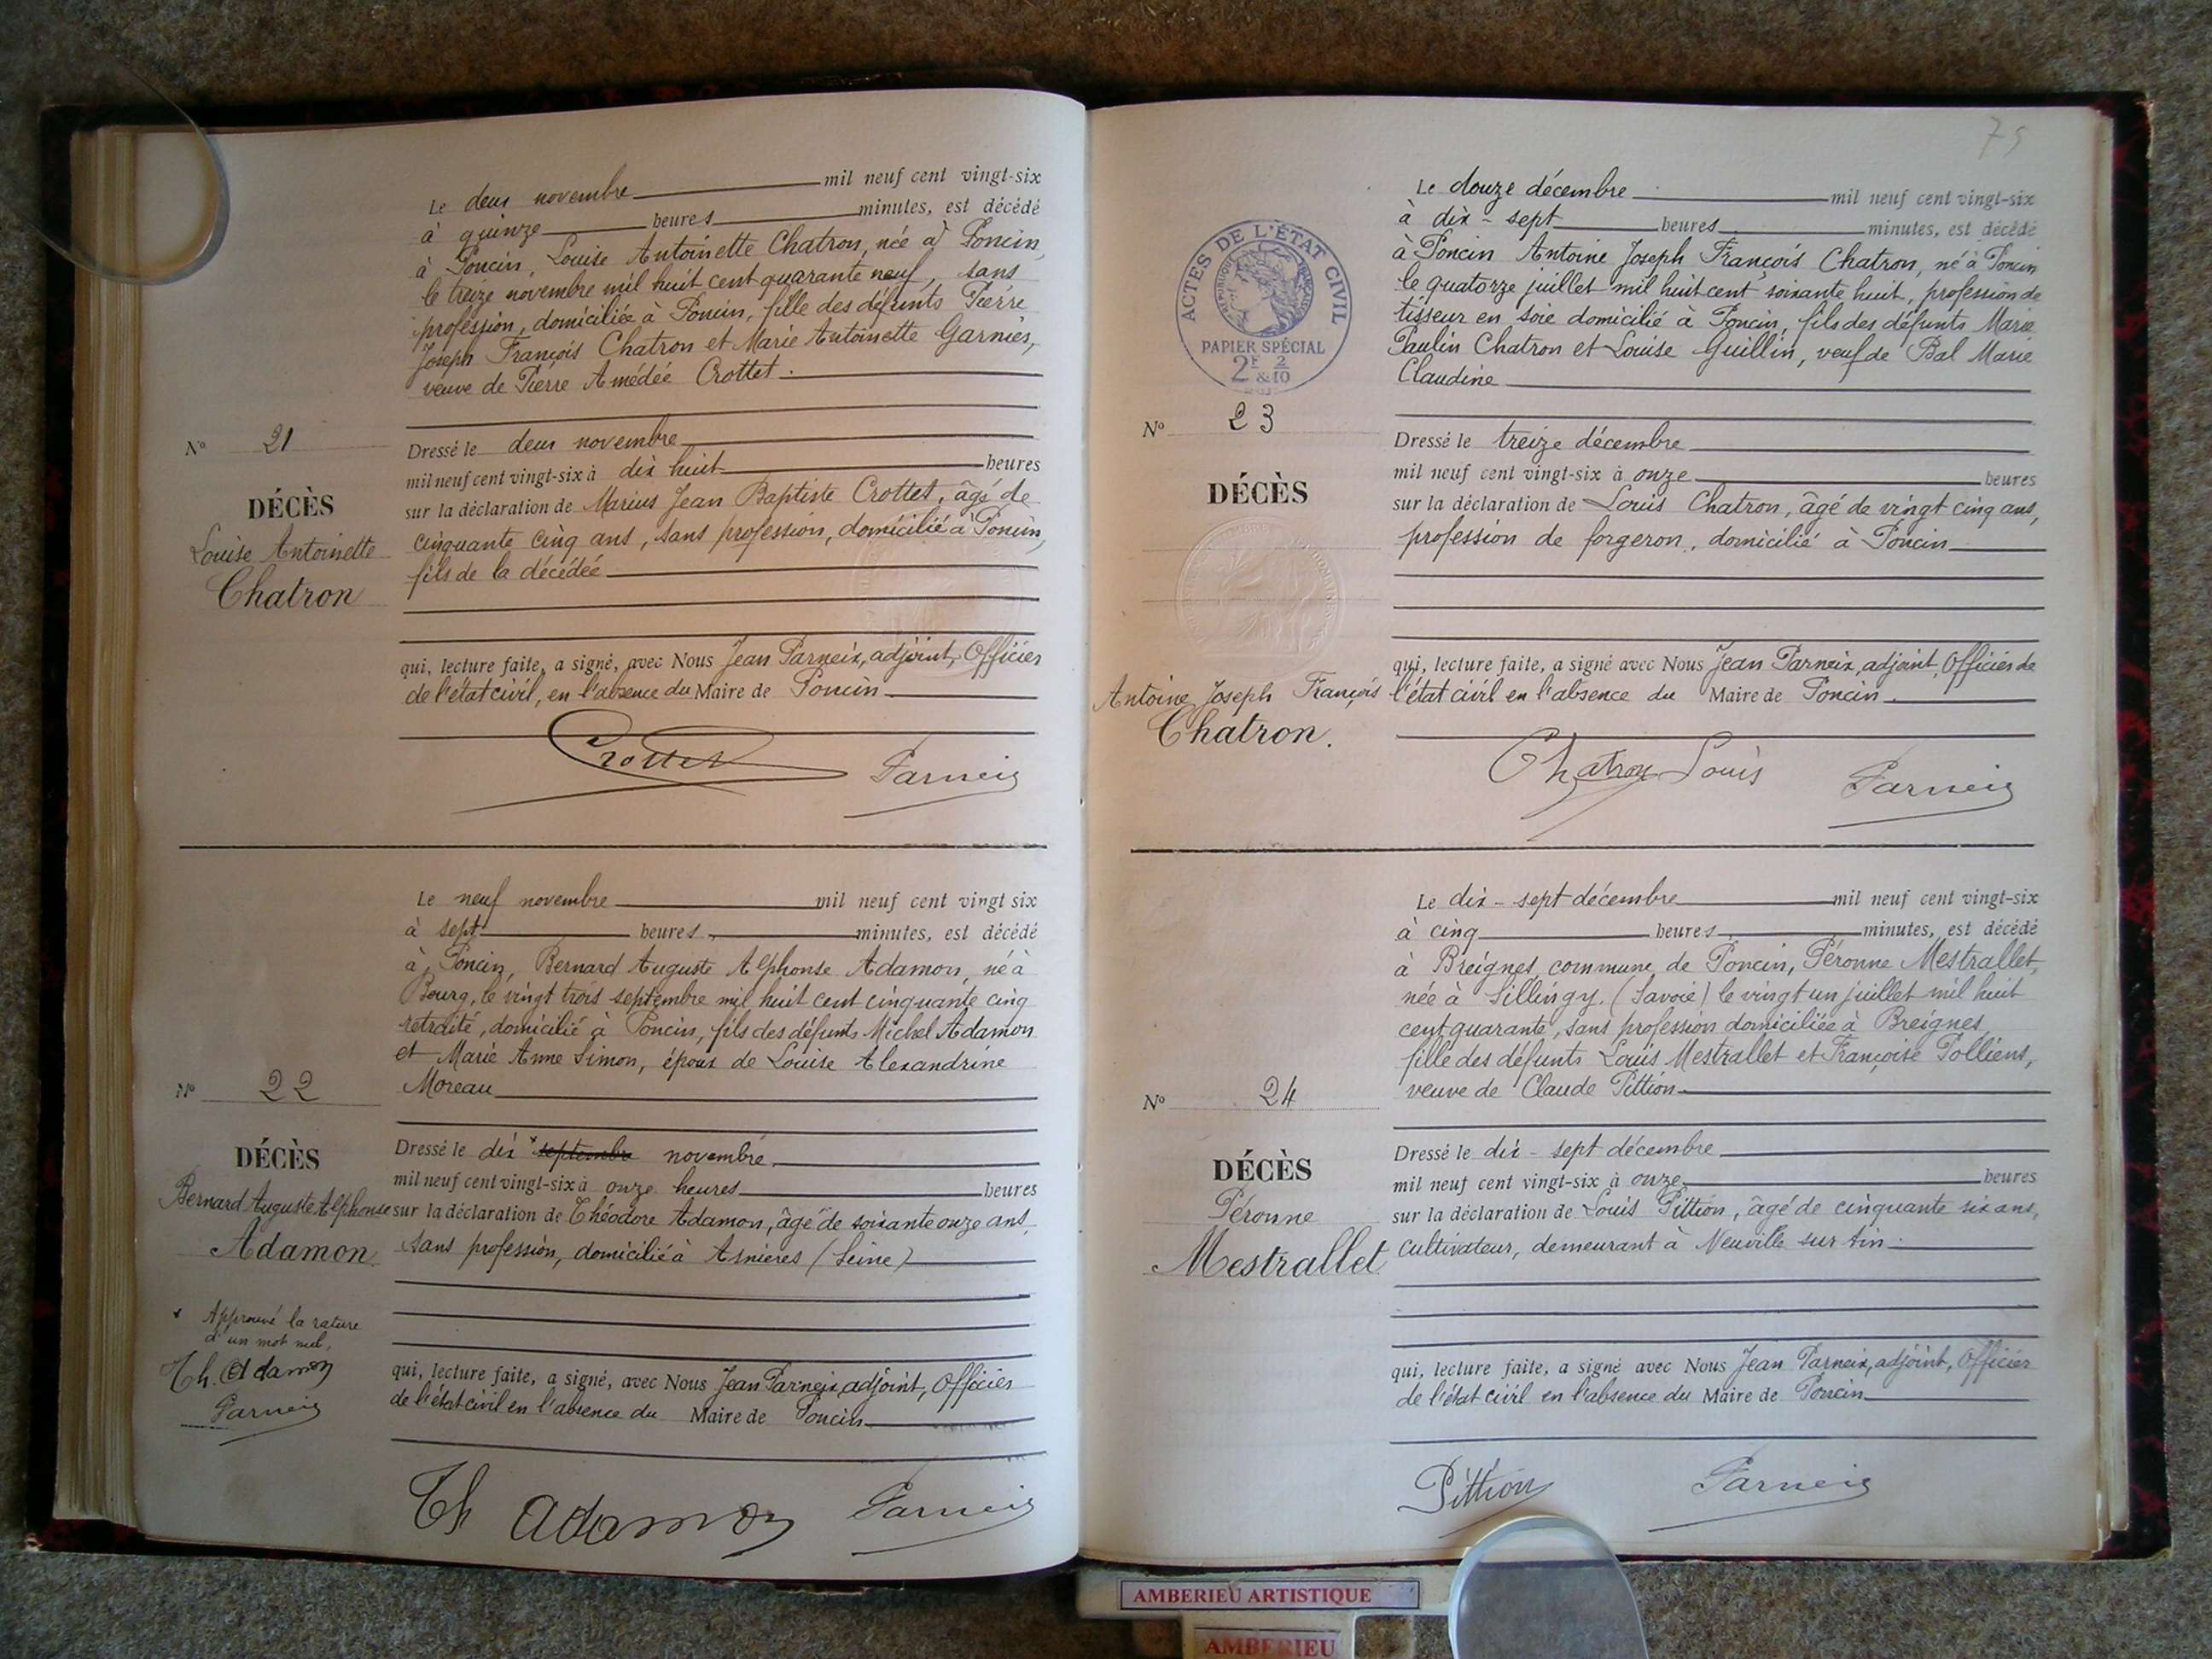 Le deux novembre mil neuf cent vingt-six
à quinze heures minutes, est décédé
à Poncin, Louise Antoinette Chatron, née à Poncin,
le treize novembre mil huit cent quarante neuf, sans
profession, domiciliée à Poncin, fille des défunts Pierre
Joseph François Chatron et Marie Antoinette Garnier,
veuve de Pierre Amédée Crottet.
Nº 21
DÉCÈS
Louise Antoinette
Chatron
Dressé le deux novembre
mil neuf cent vingt-six à dix huit heures
sur la déclaration de Marius Jean Baptiste Crottet, âgé de
cinquante cinq ans, sans profession, domicilié à Poncin,
fils de la décédée
qui, lecture faite, a signé, avec Nous Jean Parneix, adjoint, Officier
de l'état civil, en l'absence du Maire de Poncin
Crottet Parneix
Le neuf novembre mil neuf cent vingt six
à sept heures, minutes, est décédé
à Poncin, Bernard Auguste Alphonse Adamon, né à
Bourg, le vingt trois septembre mil huit cent cinquante cinq
retraité, domicilié à Poncin, fils des défunts Michel Adamon
et Marie Anne Simon, époux de Louise Alexandrine
Moreau
Nº 22
DÉCÈS
Bernard Auguste Alphonse
Adamon
Dressé le dix * septembre novembre
mil neuf cent vingt-six à onze heures heures
sur la déclaration de Théodore Adamon, âgé de soixante onze ans,
sans profession, domicilié à Asnières (Seine)
* Approuvé la rature
d'un mot nul,
Th. Adamon
Parneix
qui, lecture faite, a signé, avec Nous Jean Parneix, adjoint, Officier
de l'état civil en l'absence du Maire de Poncin
Th Adamon Parneix
75
Le douze décembre mil neuf cent vingt-six
à dix-sept heures minutes, est décédé
à Poncin Antoine Joseph François Chatron, né à Poncin
le quatorze juillet mil huit cent soixante huit, profession de
tisseur en soie domicilié à Poncin, fils des défunts Marie
Paulin Chatron et Louise Guillin, veuf de Bal Marie
Claudine
ACTES DE L'ÉTAT CIVIL
RÉPUBLIQUE FRANÇAISE
PAPIER SPÉCIAL
2F 2
&10
Nº 23
DÉCÈS
Antoine Joseph François
Chatron.
Dressé le treize décembre
mil neuf cent vingt-six à onze heures
sur la déclaration de Louis Chatron, âgé de vingt cinq ans,
profession de forgeron, domicilié à Poncin
qui, lecture faite, a signé avec Nous Jean Parneix, adjoint, Officier de
l'état civil en l'absence du Maire de Poncin.
Chatron Louis Parneix
Le dix-sept décembre mil neuf cent vingt-six
à cinq heures, minutes, est décédé
à Breignes, commune de Poncin, Péronne Mestrallet,
née à Sillingy. (Savoie) le vingt un juillet mil huit
cent quarante, sans profession domiciliée à Breignes,
fille des défunts Louis Mestrallet et Françoise Polliens,
veuve de Claude Pittion
Nº 24
DÉCÈS
Péronne
Mestrallet
Dressé le dix-sept décembre
mil neuf cent vingt-six à onze heures
sur la déclaration de Louis Pittion, âgé de cinquante six ans,
cultivateur, demeurant à Neuville sur Ain.
qui, lecture faite, a signé avec Nous Jean Parneix, adjoint, Officier
de l'état civil en l'absence du Maire de Poncin
Pittion Parneix
AMBERIEU ARTISTIQUE
AMBERIEU